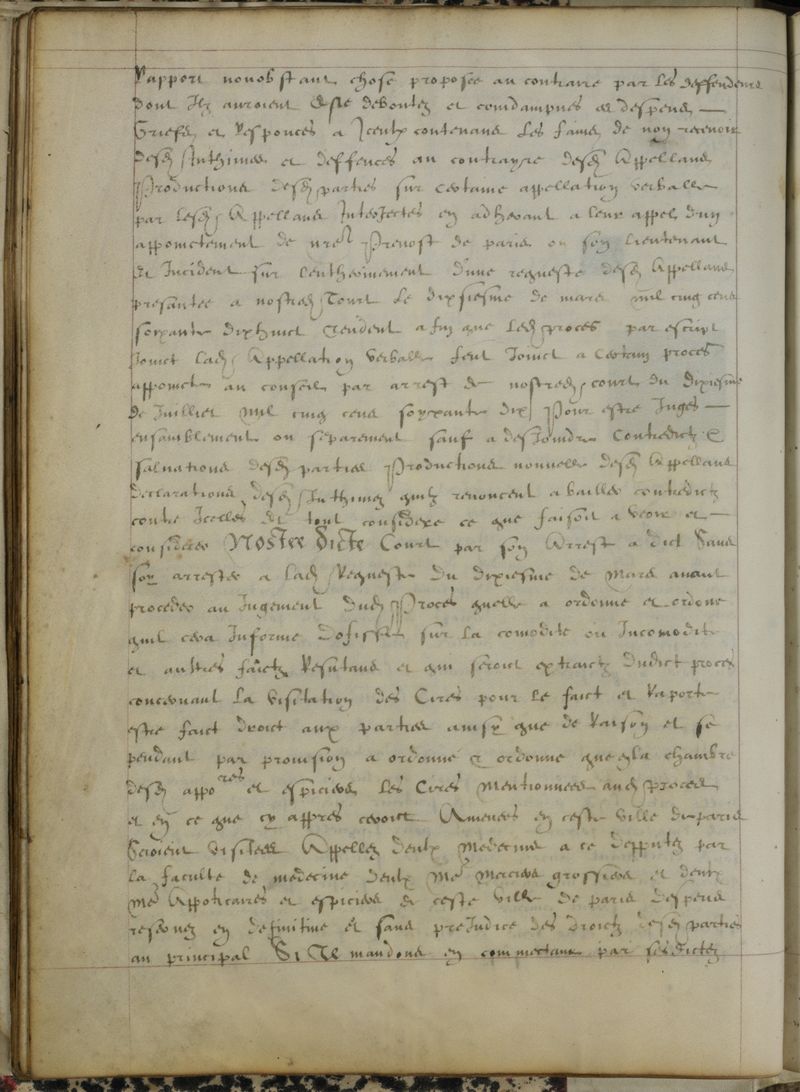 Rapport nonobstant chose proposee au contraire par les deffendeurs
dont Ilz auroient este deboutez et condampnes es despens —
Griefs et Responces a Iceulx contenans les fains de non recevoir
desd Inthimes et deffences au contrayre desd Appellans
Productions desd parties sur certaine appellation verballe
par lesd Appellans Interjectes en adherant a leur appel d'un
appoinctement de nred Prevost de paris ou son lieutenant
et Incident sur lentherinement d'une requeste desd Appellans
presantee a nostred Court le dixsiesme de mars mil cinq cens
soixante dixhuict tendent afin que led proces par escript
Joinct lad Appellation verballe feut Joinct a certain proces
appoincte au conseil par arrest de nostred court du dixiesme
de Juillet mil cinq cens soixxante dix Pour estre Juges —
ensamblement ou separement sauf a desjoindre Contredictz &
salvations desd parties Productions nouvelle desd Appellans
declarations desd Inthimez quilz renoncent a bailler contredictz
contre Icelles Et tout considere ce que faisoit a veoir et —
considerer Nostre dicte Court par son Arrest a dict Sans
soy arrester a lad Requeste du dixiesme de Mars avant
proceder au Jugement dud Proces quelle a ordonne et ordone
quil cera Informe doffice sur la comodite ou Incomodite
et aultres faictz Resultans et qui seront extraictz dudict proces
concernant la visitation des Cires pour le faict et Raporte
estre faict droict aux parties ainsy que de Raison et se
pendant par provision a ordonne & ordonne que en la chambre
desd appores et espiciers les Cires Mentionnees aud proces
et en ce que cy appres ceront Amenees en ceste ville de paris
Seroient visitees Appellez deulx Medecins a ce depputez par
la faculte de medecine deulx Mes Merciers grossiers et deulx
Mes Appoticaires et espiciers de ceste ville de paris despens
reservez en definitive et sans prejudice des droictz desd parties
au principal Si Te mandons en commectant par sesdictes